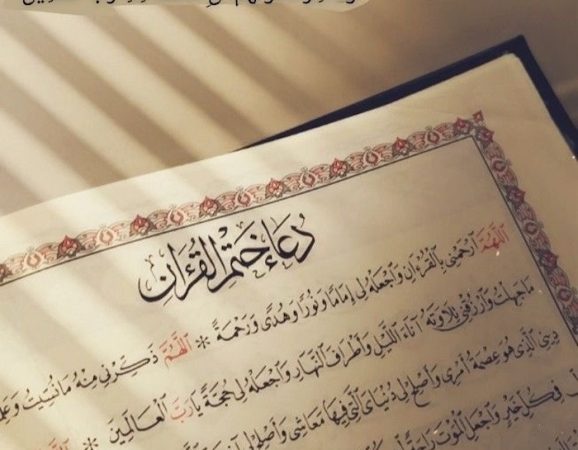 دُعَاءُ خَتْمِ الْقُرْآنِ
اَللّٰهُمَّ ٱرْحَمْنِى بِالْقُرْءَانِ وَٱجْعَلْهُ لِى إِمَامًا وَنُورًا وَهُدًى وَرَحْمَةً * اَللّٰهُمَّ ذَكِّرْنِى مِنْهُ مَا نَسِيتُ
مَا جَهِلْتُ وَٱرْزُقْنِى تِلَاوَتَهُ آنَاءَ ٱللَّيْلِ وَأَطْرَافَ ٱلنَّهَارِ وَٱجْعَلْهُ لِى حُجَّةً يَا رَبَّ ٱلْعَالَمِينَ *
دِينِى ٱلَّذِى هُوَ عِصْمَةُ أَمْرِى وَأَصْلِحْ لِى دُنْيَاىَ ٱلَّتِى فِيهَا مَعَاشِى وَأَصْلِحْ لِى
فِى كُلِّ خَيْرٍ وَٱجْعَلِ ٱلْمَوْتَ رَاحَةً